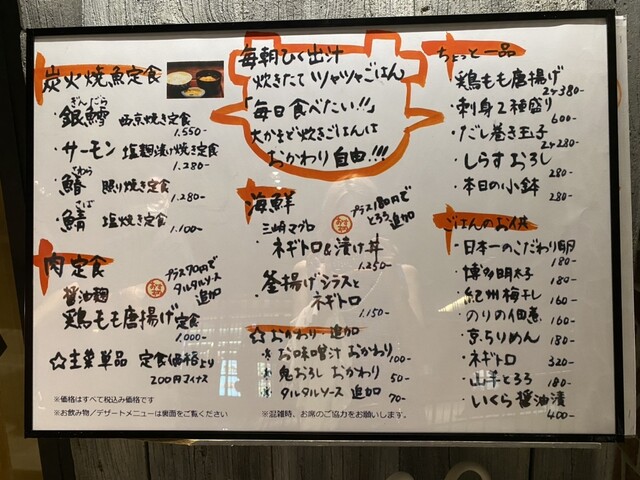 炭火焼魚定食
ぎんだら
・銀鱈 西京焼き定食
1.550-
・サーモン 塩麹漬け焼き定食
1.280-
さわら
・鰆 照り焼き定食
1.280-
さば
・鯖 塩焼き定食
1.100-
肉定食
おすすめ
プラス90円で
タルタルソース
追加
醤油麹
鶏もも唐揚げ定食
1.000-
☆主菜単品 定食価格より
200円マイナス
※価格はすべて税込み価格です
※お飲み物/デザートメニューは裏面をご覧ください
毎朝ひく出汁
炊きたてツヤツヤごはん
「毎日食べたい!!」
大かまど炊きごはんは
おかわり自由!!!
海鮮
おすすめ
プラス180円で
とろろ追加
三崎マグロ
・ネギトロ&漬け丼
1.250-
・釜揚げシラスと
ネギトロ
1.150-
☆おかわり・追加
※お味噌汁 おかわり 100-
※鬼おろし おかわり 50-
※タルタルソース 追加 70-
※混雑時、お席のご協力をお願いします。
ちょっと一品
・鶏もも唐揚げ
2ヶ380-
・刺身2種盛り
600-
・だし巻き玉子
2ヶ280-
・しらすおろし
280-
・本日の小鉢
280-
ごはんのお供
・日本一のこだわり卵
180-
・博多明太子
180-
・紀州梅干し 160-
・のりの佃煮 160-
・京ちりめん 180-
・ネギトロ 320-
・山芋とろろ 180-
・いくら醤油漬
400-